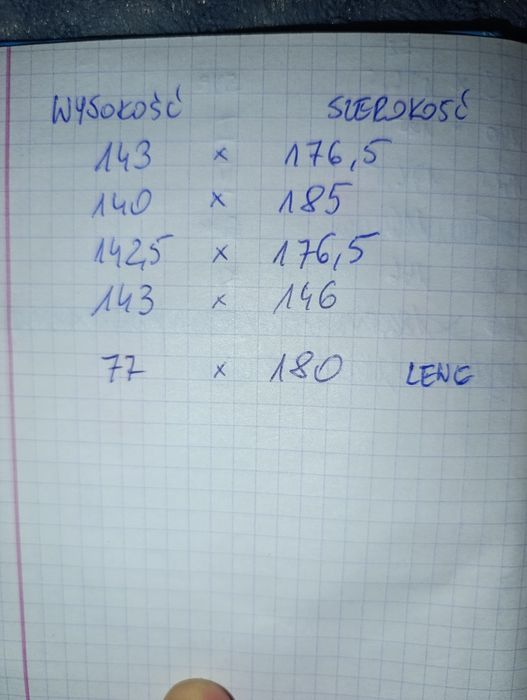 WYSOKOŚĆ SZEROKOŚĆ
143 x 176,5
140 x 185
142,5 x 176,5
143 x 146
77 x 180